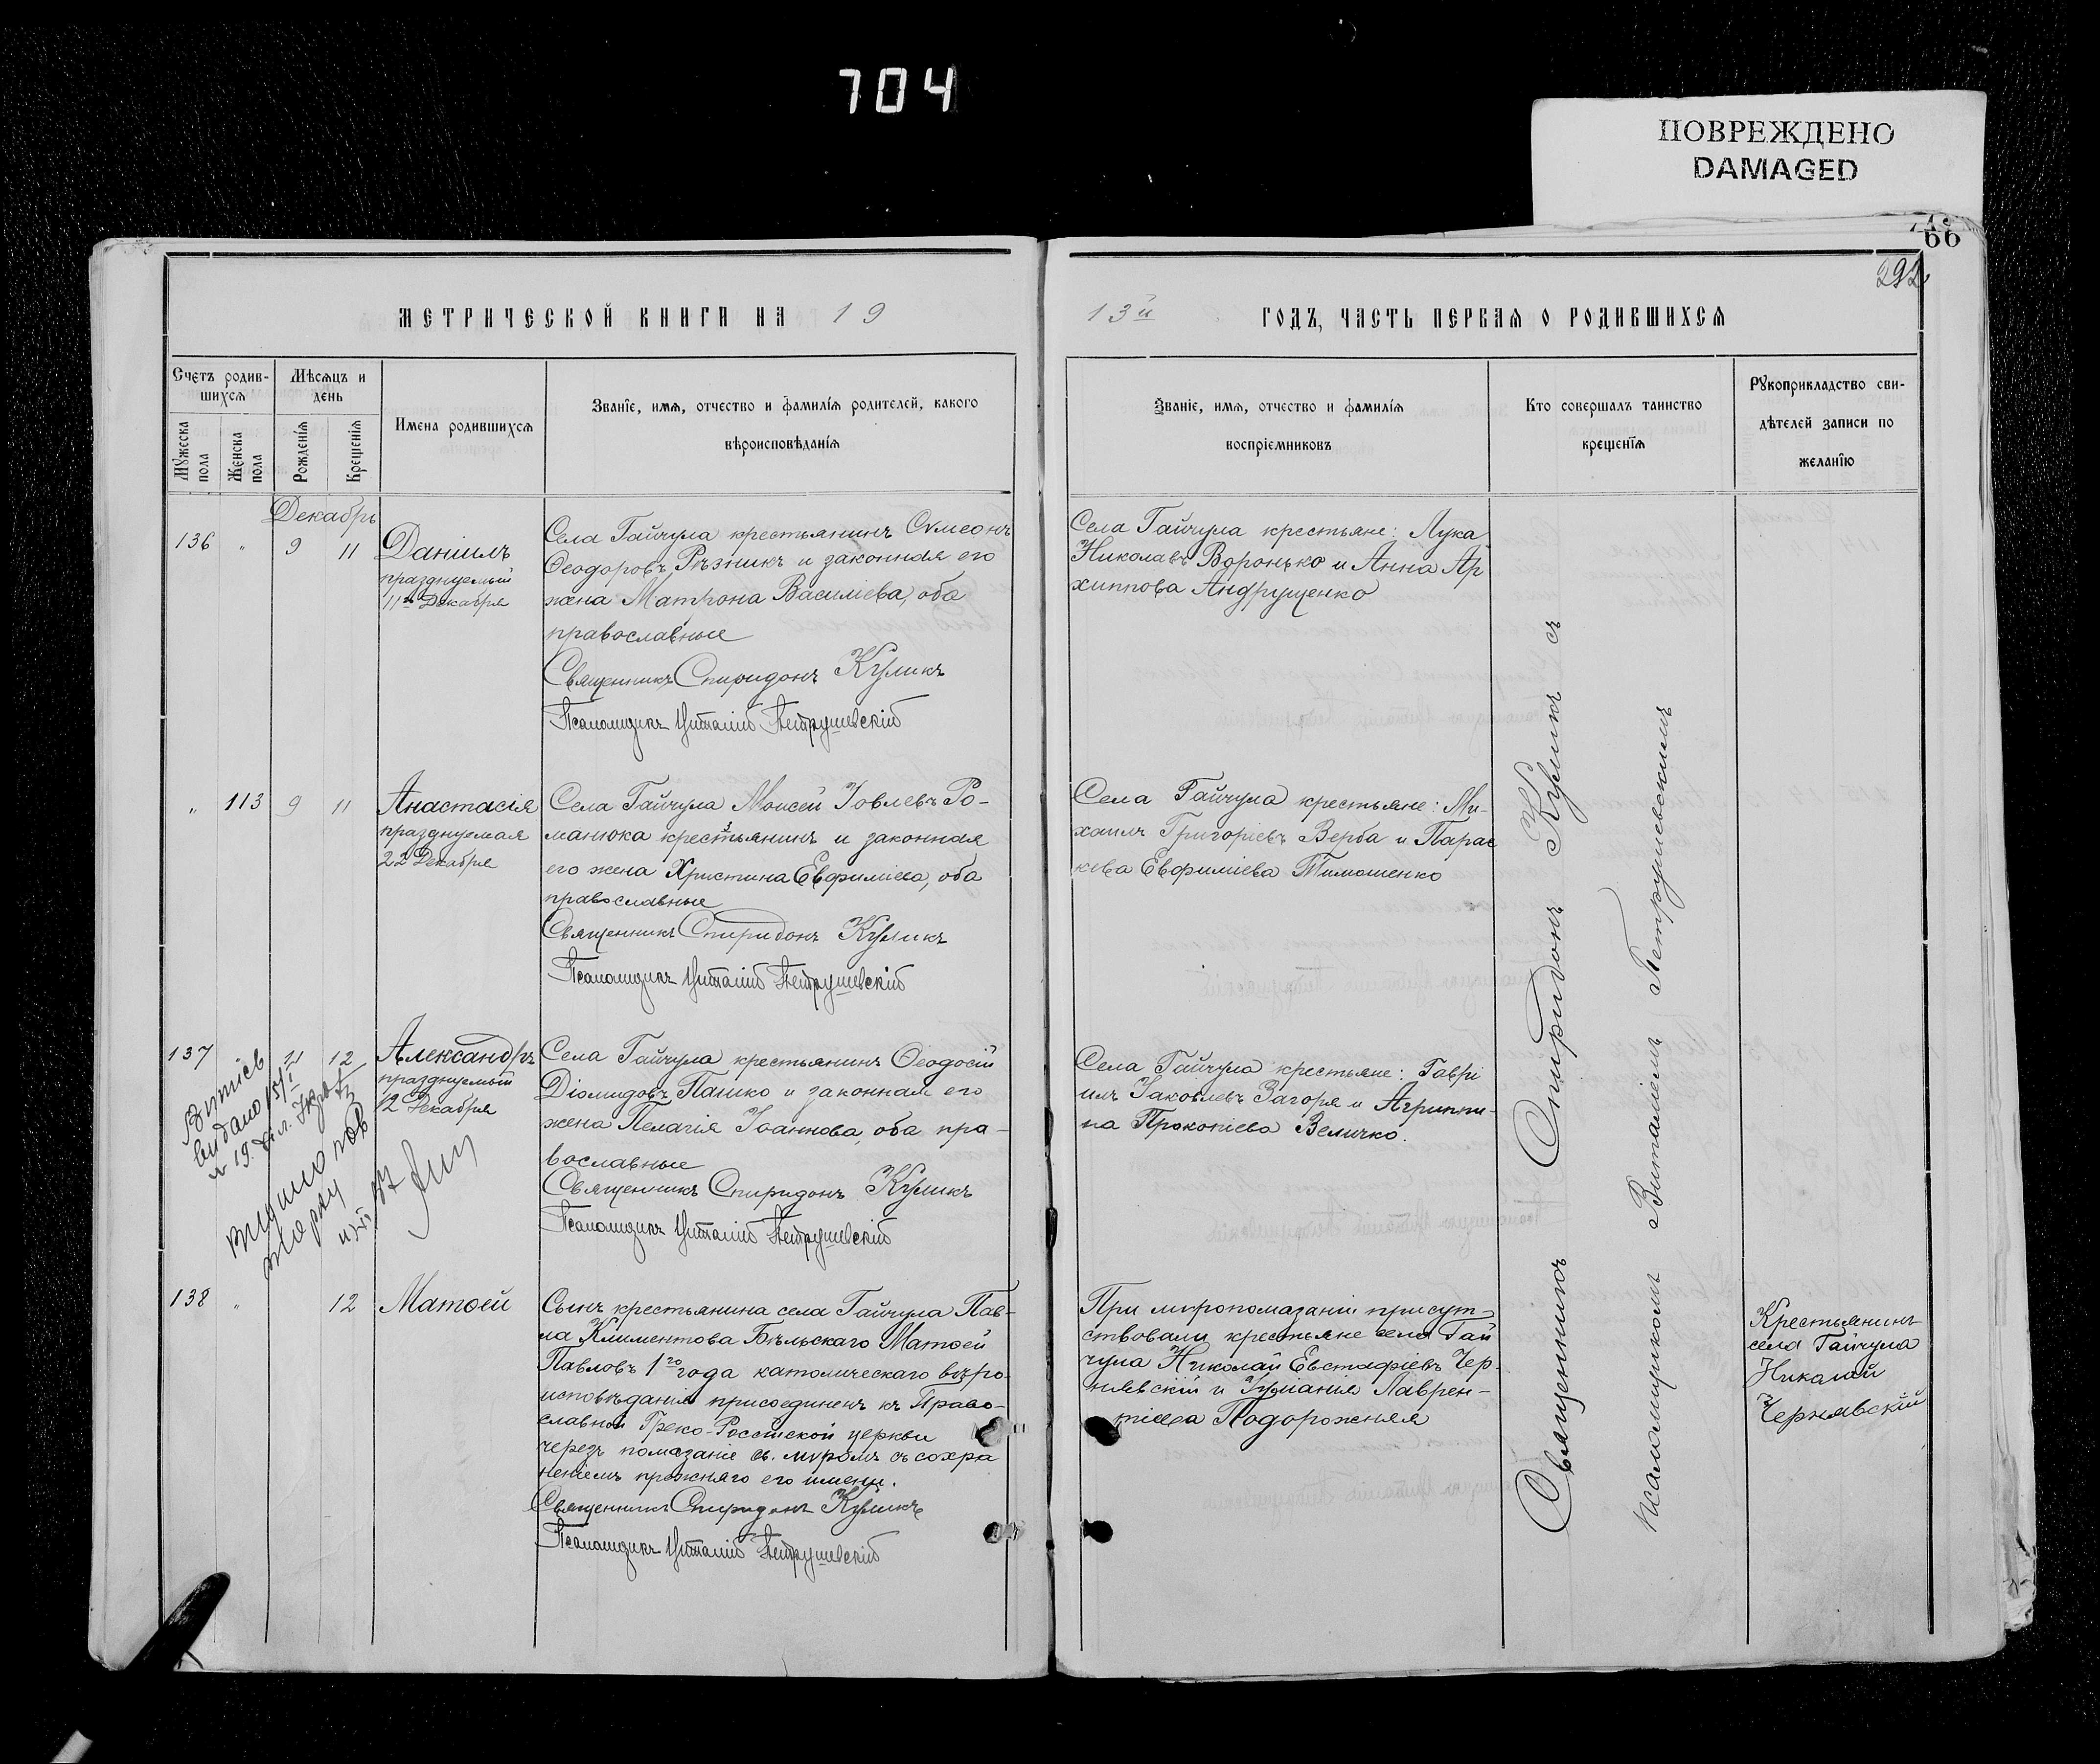 704
ПОВРЕЖДЕНО
DAMAGED
66
292
МЕТРИЧЕСКОЙ КНИГИ НА 19
13й ГОДЪ, ЧАСТЬ ПЕРВАЯ О РОДИВШИХСЯ
Счетъ родив-
шихся
Мѣсяцъ и
день
Мужеска
пола
Женска
пола
Рожденія
Крещенія
Имена родившихся
Званіе, имя, отчество и фамилія родителей, какого
вѣроисповѣданія
Званіе, имя, отчество и фамилія
воспріемниковъ
Кто совершалъ таинство
крещенія
Рукоприкладство сви-
дѣтелей записи по
желанію
Декабрь
136 " 9 11
Даніилъ
празднуемый
11го Декабря
Села Гайчула крестьянинъ Сѵмеонъ
Ѳеодоровъ Рѣзникъ и законная его
жена Матрона Василиева, оба
православные
Священникъ Спиридонъ Куликъ
Псаломщикъ Виталій Петрушевскій
Села Гайчула крестьяне: Лука
Николаевъ Воронько и Анна Ар
хиппова Андрущенко
" 113 9 11
Анастасія
празднуемая
22 Декабря
Села Гайчула Моисей Іовлевъ Ро-
манюка крестьянинъ и законная
его жена Христина Евфимиева, оба
православные
Священникъ Спиридонъ Куликъ
Псаломщикъ Виталій Петрушевскій
Села Гайчула крестьяне: Ми-
хаилъ Григоріевъ Верба и Парас
кева Евфиміева Тимошенко
137 12
Александръ
празднуемый
12 Декабря
Села Гайчула крестьянинъ Ѳеодосій
Діомидовъ Пашко и законная его
жена Пелагія Іоаннова, оба пра-
вославные
Священникъ Спиридонъ Куликъ
Псаломщикъ Виталій Петрушевскій
Села Гайчула крестьяне: Гаврі
илъ Іаковлевъ Загоря и Агриппи-
на Прокопіева Величко.
видано 15/I
138 " 12
Матѳей
Сынъ крестьянина села Гайчула Пав-
ла Климентова Бѣльскаго Матѳей
Павловъ 1го года католическаго вѣро-
исповѣданія присоединенъ къ Право-
славной Греко-Россійской церкви
черезъ помазаніе св. мѵромъ съ сохра
неніемъ прежняго его имени.
Священникъ Спиридонъ Куликъ
Псаломщикъ Виталій Петрушевскій
При мѵропомазаніи присут-
ствовали крестьяне села Гай
чула Николай Евстафіевъ Чер-
нявскій и Лаврен-
тіева Подорожняя
Священникъ Спиридонъ Куликъ съ
псаломщикомъ Виталіемъ Петрушевскимъ
Крестьянинъ
села Гайчула
Николай
Чернявскій